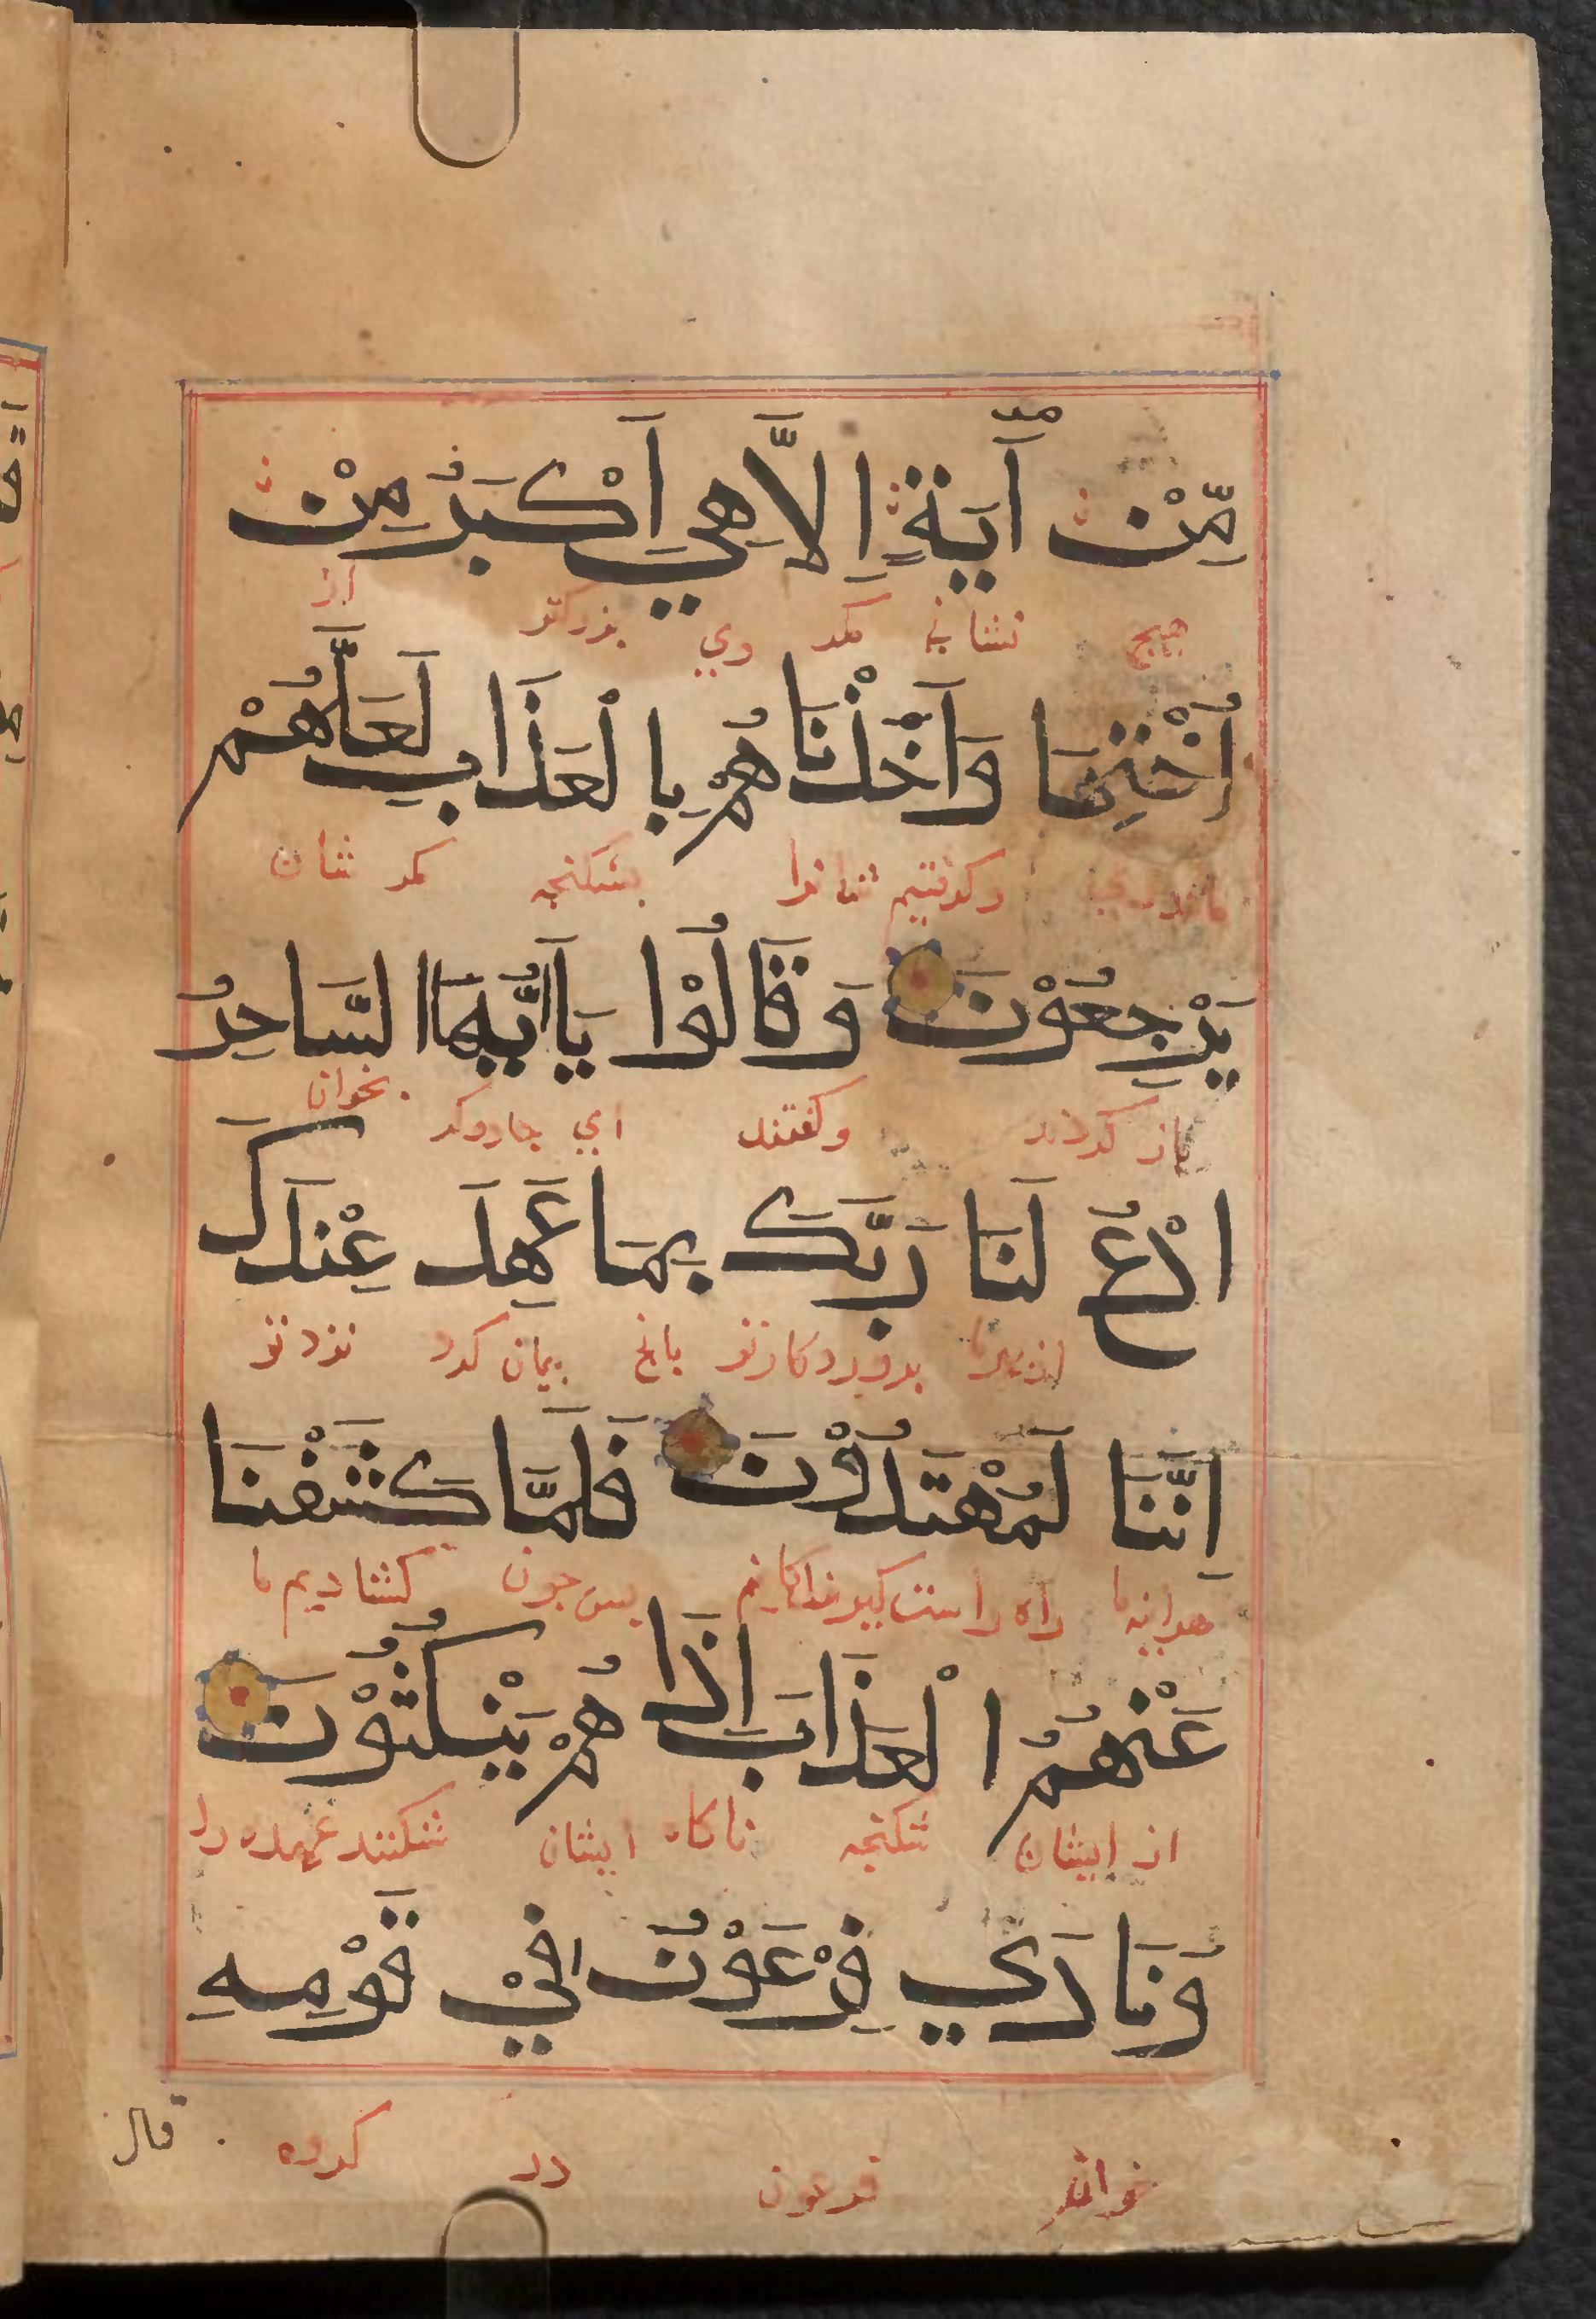 مِّنْ آيَةٍ اِلَّا هِيَ اَكْبَرُ مِنْ
هيچ نشانی مكر وي بزركتر از
اُخْتِهَا وَاَخَذْنَاهُمْ بِا لْعَذَابِ لَعَلَّهُمْ
وكرفتيم شانرا بشكنجه مكر شان
يَرْجِعُوْنَ وَقَالُوْا يَا اَيُّهَا السَّاحِرُ
باز كردند وكفتند اي جادوكر بخوان
ادْعُ لَنَا رَبَّكَ بِمَا عَهِدَ عِنْدَكَ
پروردكار تو بانچ پيمان كرد نزد تو
اِنَّنَا لَمُهْتَدُوْنَ فَلَمَّا كَشَفْنَا
هراينه ما راه راست كيرندكانيم پس چون كشاديم ما
عَنْهُمُ الْعَذَابَ اِذَا هُمْ يَنْكُثُوْنَ
از ايشان شكنجه ناكاه ايشان شكنند عهد را
وَنَادَي فِرْعَوْنُ فِيْ قَوْمِهِ
خواند فرعون در كروه
قال